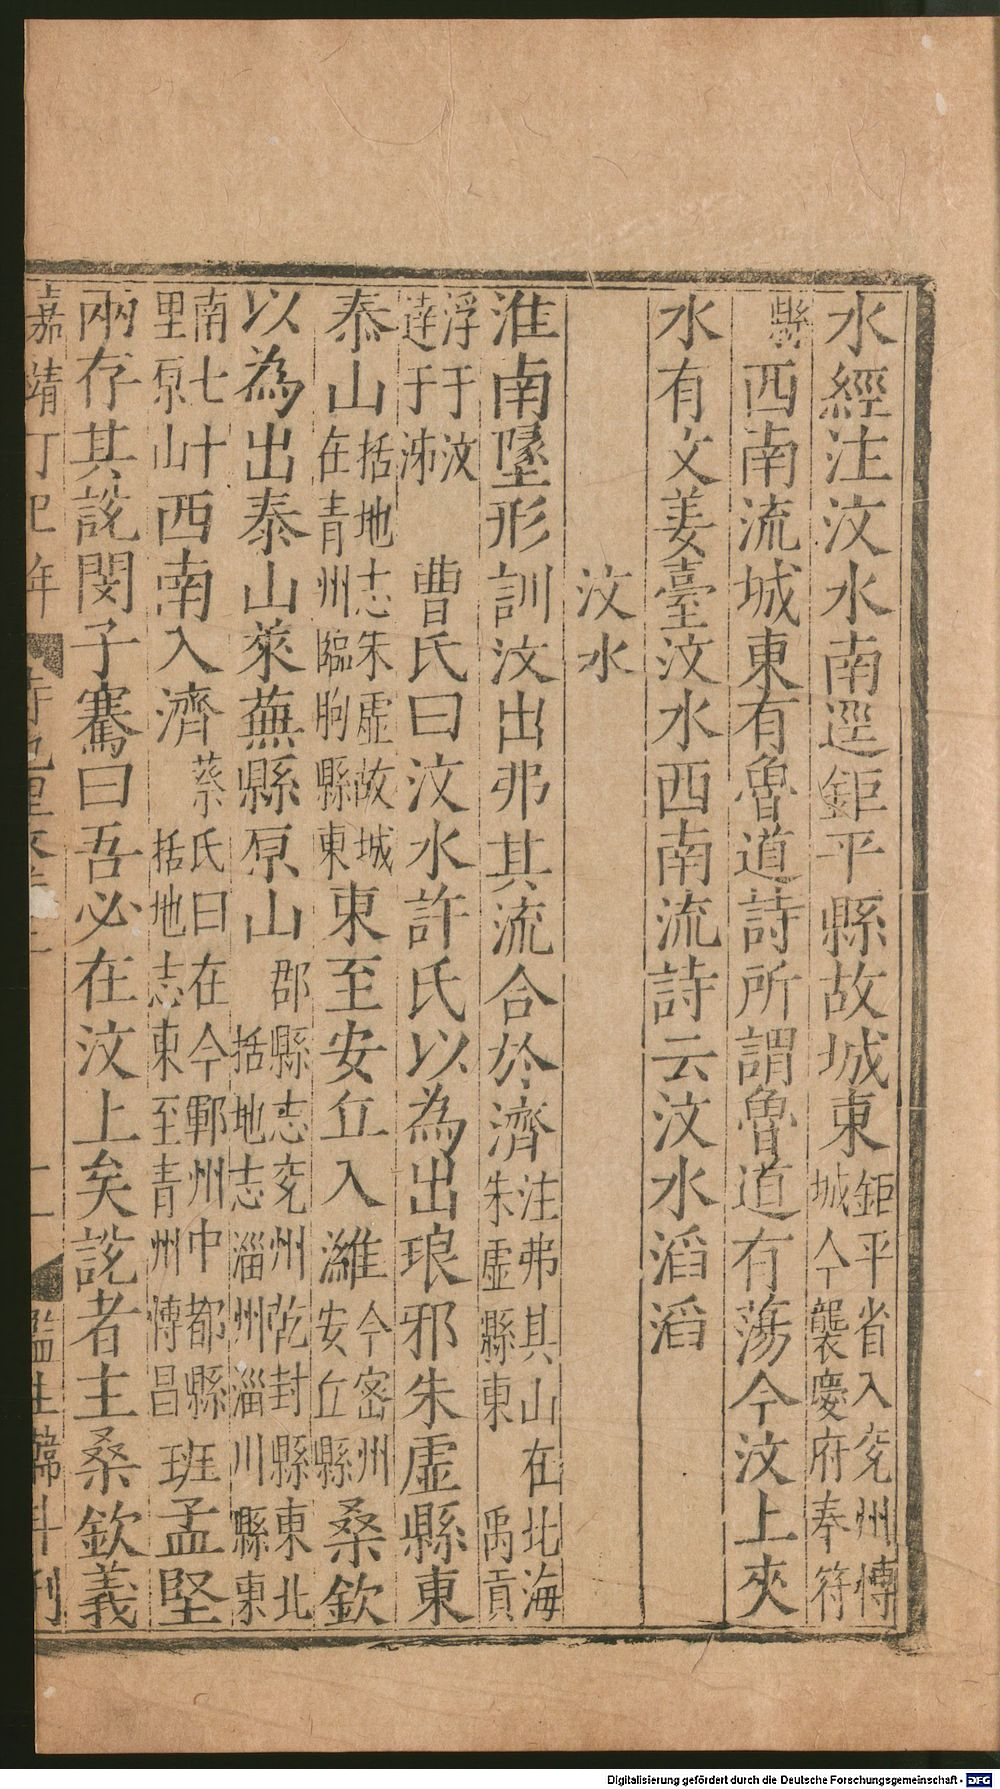 水經注汶水南逕鉅平縣故城東鉅平省入兖州博城今襲慶府奉符
縣西南流城東有魯道詩所謂魯道有蕩今汶上夾
水有文姜臺汶水西南流詩云汶水滔滔
汶水
淮南墬形訓汶出弗其流合於濟注弗其山在北海朱虛縣東禹貢
浮于汶達于泲曹氏曰汶水許氏以為出琅邪朱虛縣東
泰山括地志朱虛故城在青州臨朐縣東東至安丘入濰今密州安丘縣桑欽
以為出泰山萊蕪縣原山郡縣志兖州乾封縣東北括地志淄州淄川縣東
南七十里原山西南入濟蔡氏曰在今鄆州中都縣括地志東至青州博昌班孟堅
兩存其說閔子騫曰吾必在汶上矣說者主桑欽義
嘉靖丁巳年
監生韓科刊
Digitalisierung gefördert durch die Deutsche Forschungsgemeinschaft - DFG